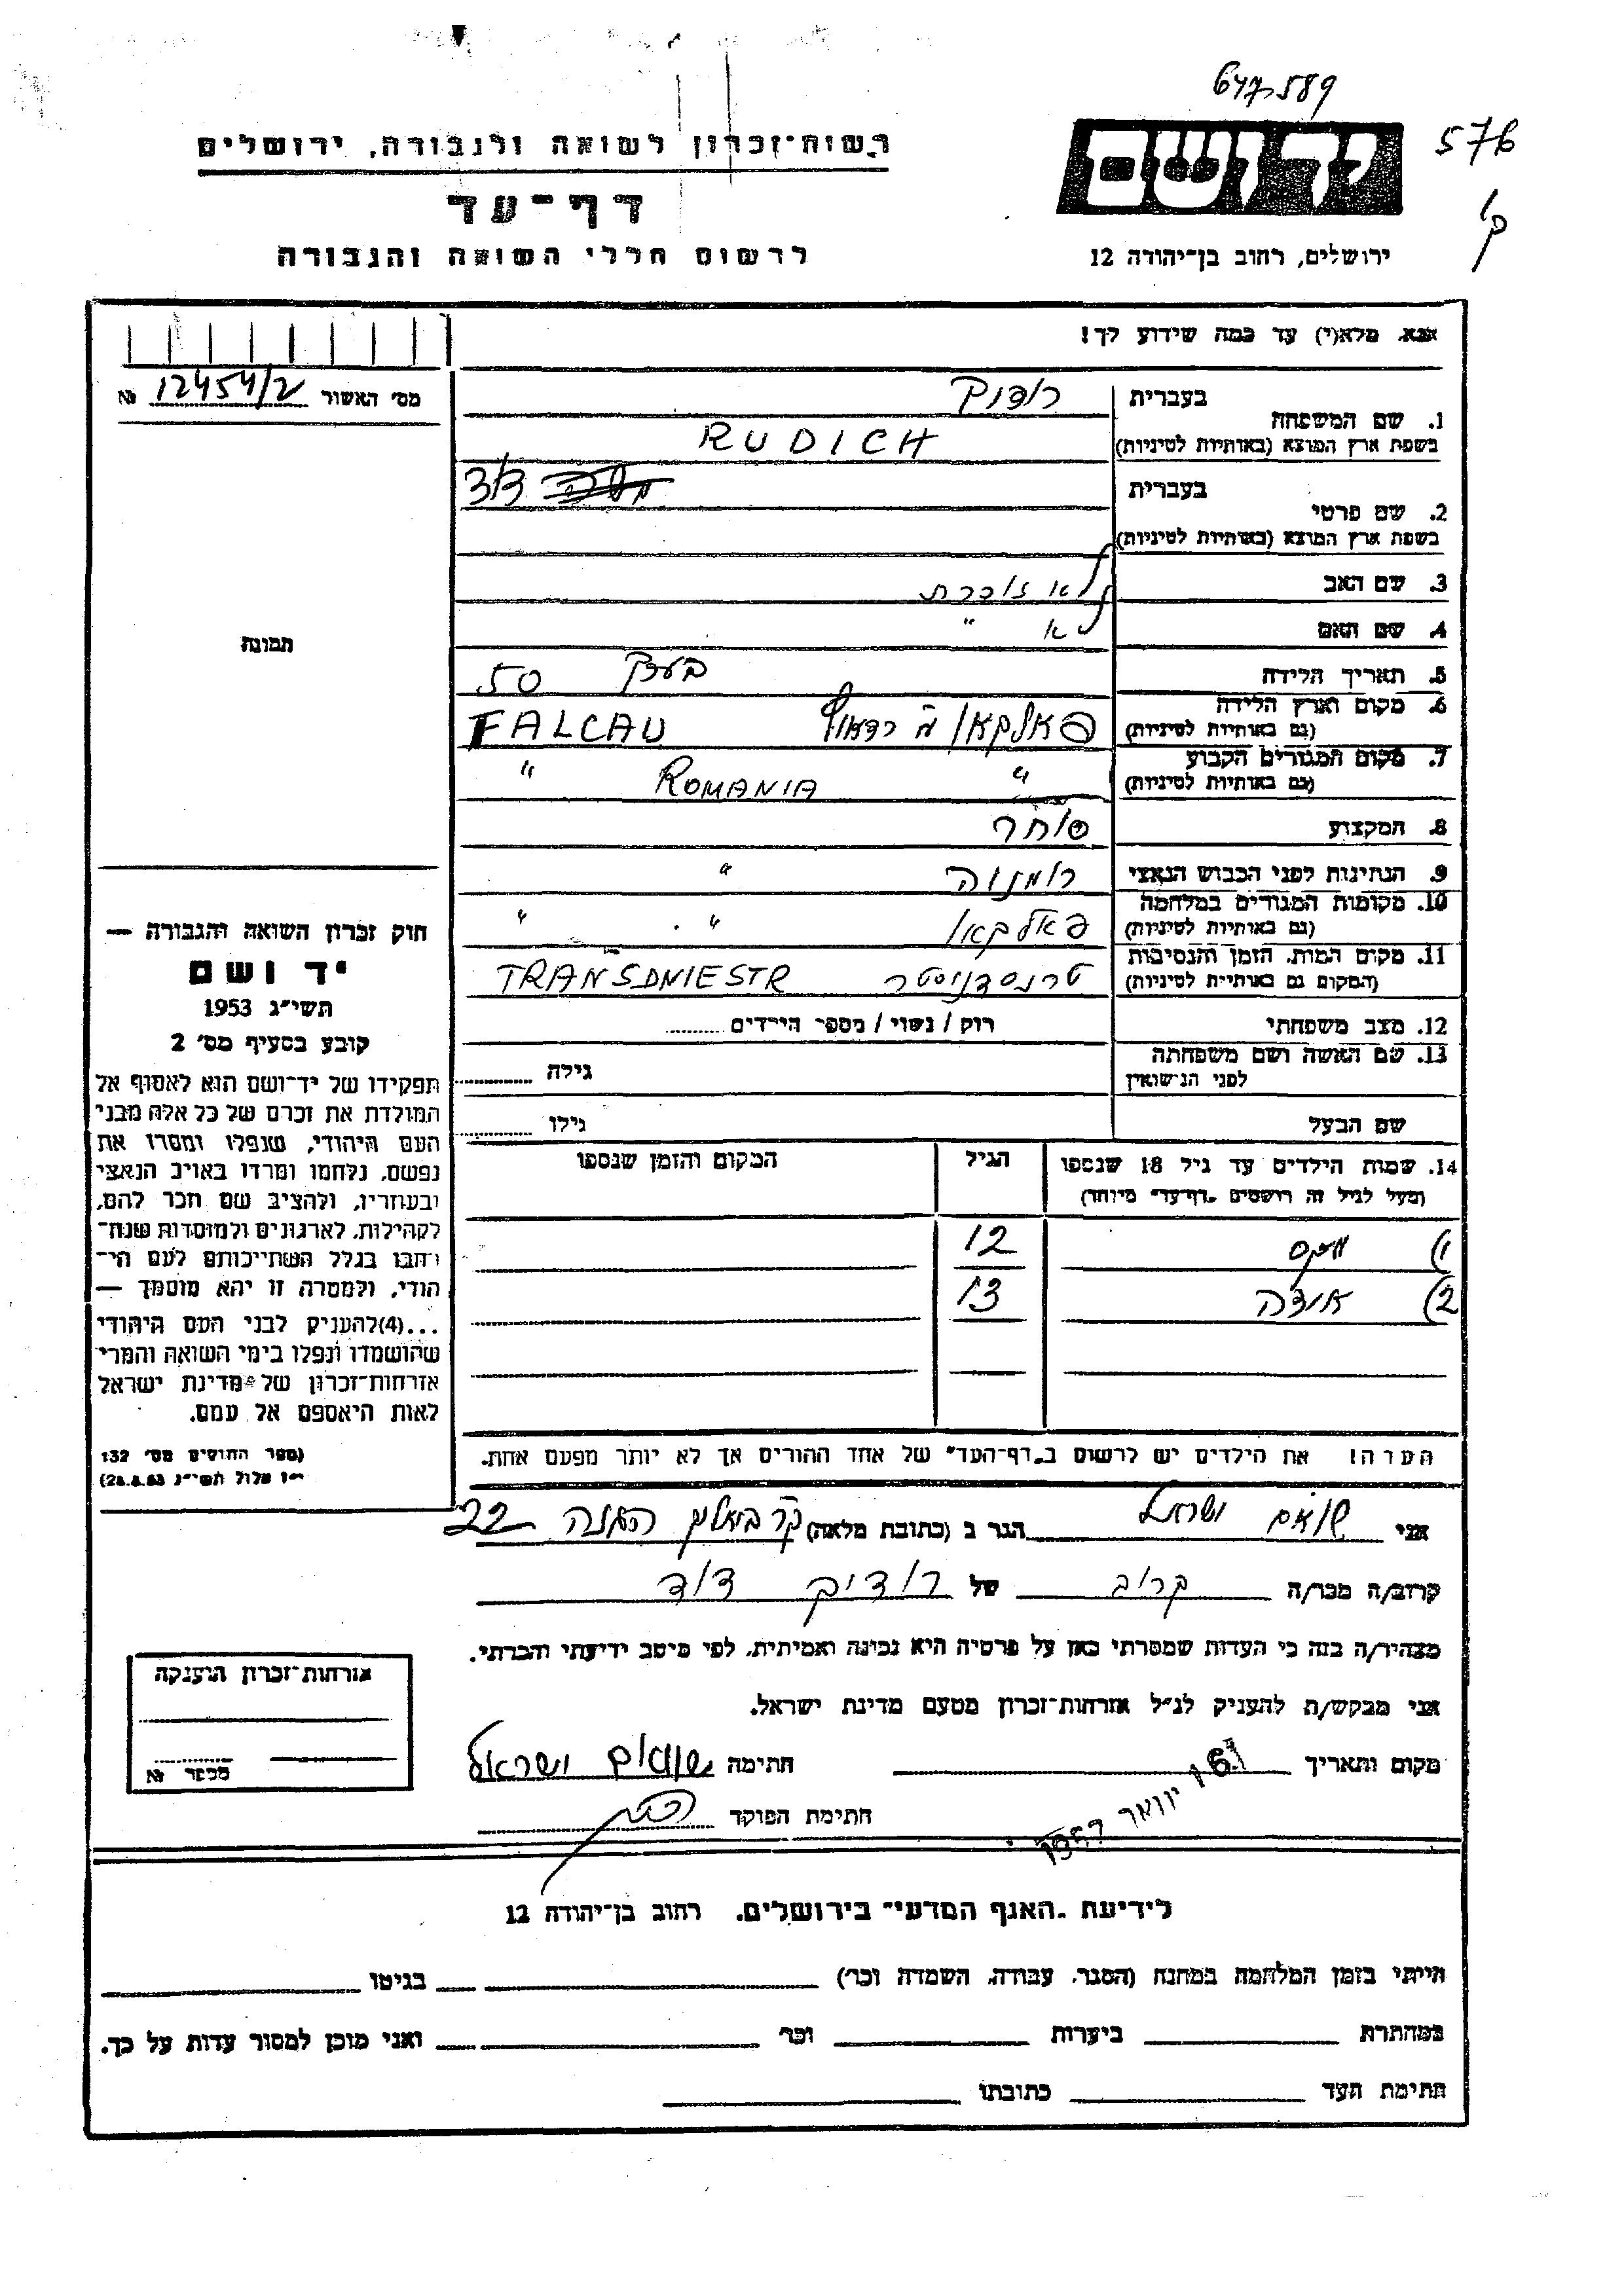 647589
576
רשות־זכרון לשואה ולגבורה, ירושלים
יד ושם
דף־עד
לרשום חללי השואה והגבורה
ירושלים, רחוב בן־יהודה 12
אנא מלא(י) עד כמה שידוע לך!
מס׳ האשור 12454/2 №
1. שם המשפחה
בעברית רודיק
בשפת ארץ המוצא (באותיות לטיניות) RUDICH
2. שם פרטי
בעברית דוד
בשפת ארץ המוצא (באותיות לטיניות)
3. שם האב לא זוכרת
4. שם האם לא "
תמונה
5. תאריך הלידה בערך 50
6. מקום וארץ הלידה
(גם באותיות לטיניות) פאלקאו FALCAU
7. מקום המגורים הקבוע
(גם באותיות לטיניות) " ROMANIA "
8. המקצוע סוחר
9. הנתינות לפני הכבוש הנאצי רומניה "
10. מקומות המגורים במלחמה
(גם באותיות לטיניות) פאלקאו " "
11. מקום המות, הזמן והנסיבות
(המקום גם באותיות לטיניות) טרנסדניסטר TRANSDNIESTR
12. מצב משפחתי רוק / נשוי / מספר הילדים
13. שם האשה ושם משפחתה
לפני הנישואין גילה
שם הבעל גילו
14. שמות הילדים עד גיל 18 שנספו
(מעל לגיל זה רושמים ״דף־עד״ מיוחד)
הגיל
המקום והזמן שנספו
1) מקס 12
2) 13
הערה! את הילדים יש לרשום ב״דף־העד״ של אחד ההורים אך לא יותר מפעם אחת.
חוק זכרון השואה והגבורה —
יד ושם
תשי״ג 1953
קובע בסעיף מס׳ 2
תפקידו של יד־ושם הוא לאסוף אל
המולדת את זכרם של כל אלה מבני
העם היהודי, שנפלו ומסרו את
נפשם, נלחמו ומרדו באויב הנאצי
ובעוזריו, ולהציב שם וזכר להם,
לקהילות, לארגונים ולמוסדות שנח־
רבו בגלל השתייכותם לעם הי־
הודי, ולמטרה זו יהא מוסמך —
...(4) להעניק לבני העם היהודי
שהושמדו ונפלו בימי השואה והמרי
אזרחות־זכרון של מדינת ישראל
לאות היאספם אל עמם.
(ספר החוקים מס׳ 132
י״ז אלול תשי״ג 28.8.53)
אני ישראל הגר ב (כתובת מלאה) קר ביאליק ההגנה 22
קרוב/ה מכר/ה קרוב של רודיק דוד
מצהיר/ה בזה כי העדות שמסרתי כאן על פרטיה היא נכונה ואמיתית, לפי מיטב ידיעתי והכרתי.
אני מבקש/ת להעניק לנ״ל אזרחות־זכרון מטעם מדינת ישראל.
מקום ותאריך 16 ינואר 1957 חתימה ישראל
חתימת הפוקד
אזרחות־זכרון הוענקה
מספר №
לידיעת ״האגף המדעי״ בירושלים, רחוב בן־יהודה 12
הייתי בזמן המלחמה במחנה (הסגר, עבודה, השמדה וכו׳) בגיטו
במחתרת ביערות וכו׳ ואני מוכן למסור עדות על כך.
חתימת העד כתובתו